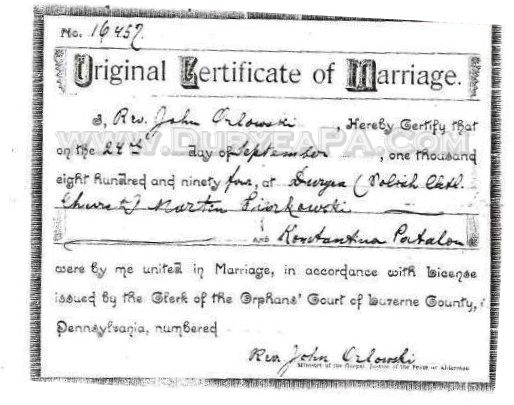 No. 16457.
Original Certificate of Marriage.
I, Rev. John Orlowski, Hereby Certify that
www.DuryeaPa.com
on the 24th day of September, one thousand
eight hundred and ninety four, at Duryea (Polish Cath.
Church) Martin Piorkowski
and Konstantina Patalon
were by me united in Marriage, in accordance with License
issued by the Clerk of the Orphans' Court of Luzerne County,
Pennsylvania, numbered
Rev. John Orlowski
Minister of the Gospel, Justice of the Peace or Alderman